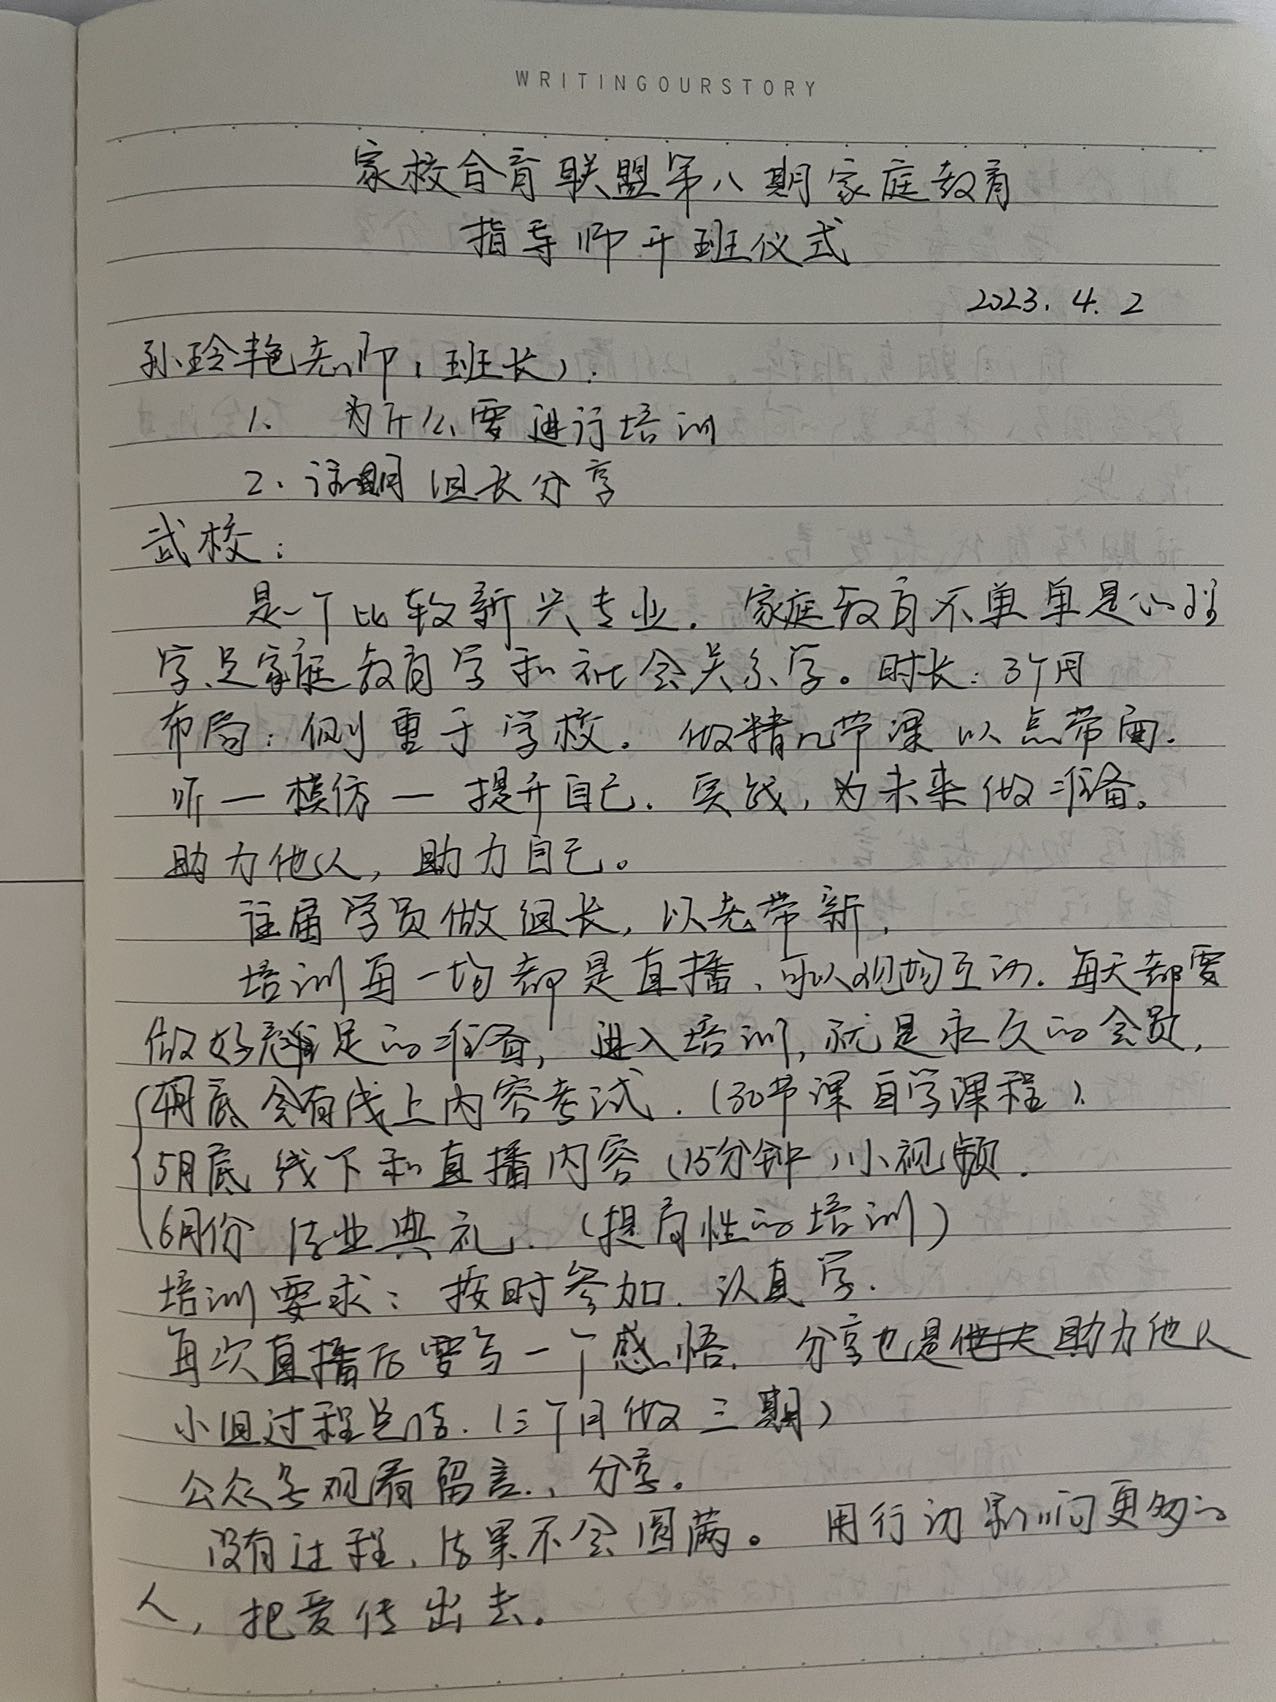 WRITINGOURSTORY
家校合育联盟第八期家庭教育
指导师开班仪式
2023.4.2
孙玲艳老师(班长):
1. 为什么要进行培训
2. 往期组长分享
武校:
是一个比较新兴专业. 家庭教育不单单是心理
学,是家庭教育学和社会关系学。时长:3个月
布局:侧重于学校. 做精几节课 以点带面.
听—模仿—提升自己. 实战,为未来做准备。
助力他人,助力自己。
往届学员做组长,以老带新.
培训每一场都是直播、可以现场互动. 每天都要
做好充足的准备, 进入培训,就是永久的会员,
4月底 会有线上内容考试. (30节课自学课程).
5月底 线下和直播内容(15分钟)小视频.
6月份 结业典礼. (提高性的培训)
培训要求: 按时参加. 认真学.
每次直播后要写一个感悟. 分享也是助力他人
小组过程总结. (三个月做三期)
公众号观看留言、分享。
没有过程,结果不会圆满。 用行动影响更多的
人,把爱传出去。